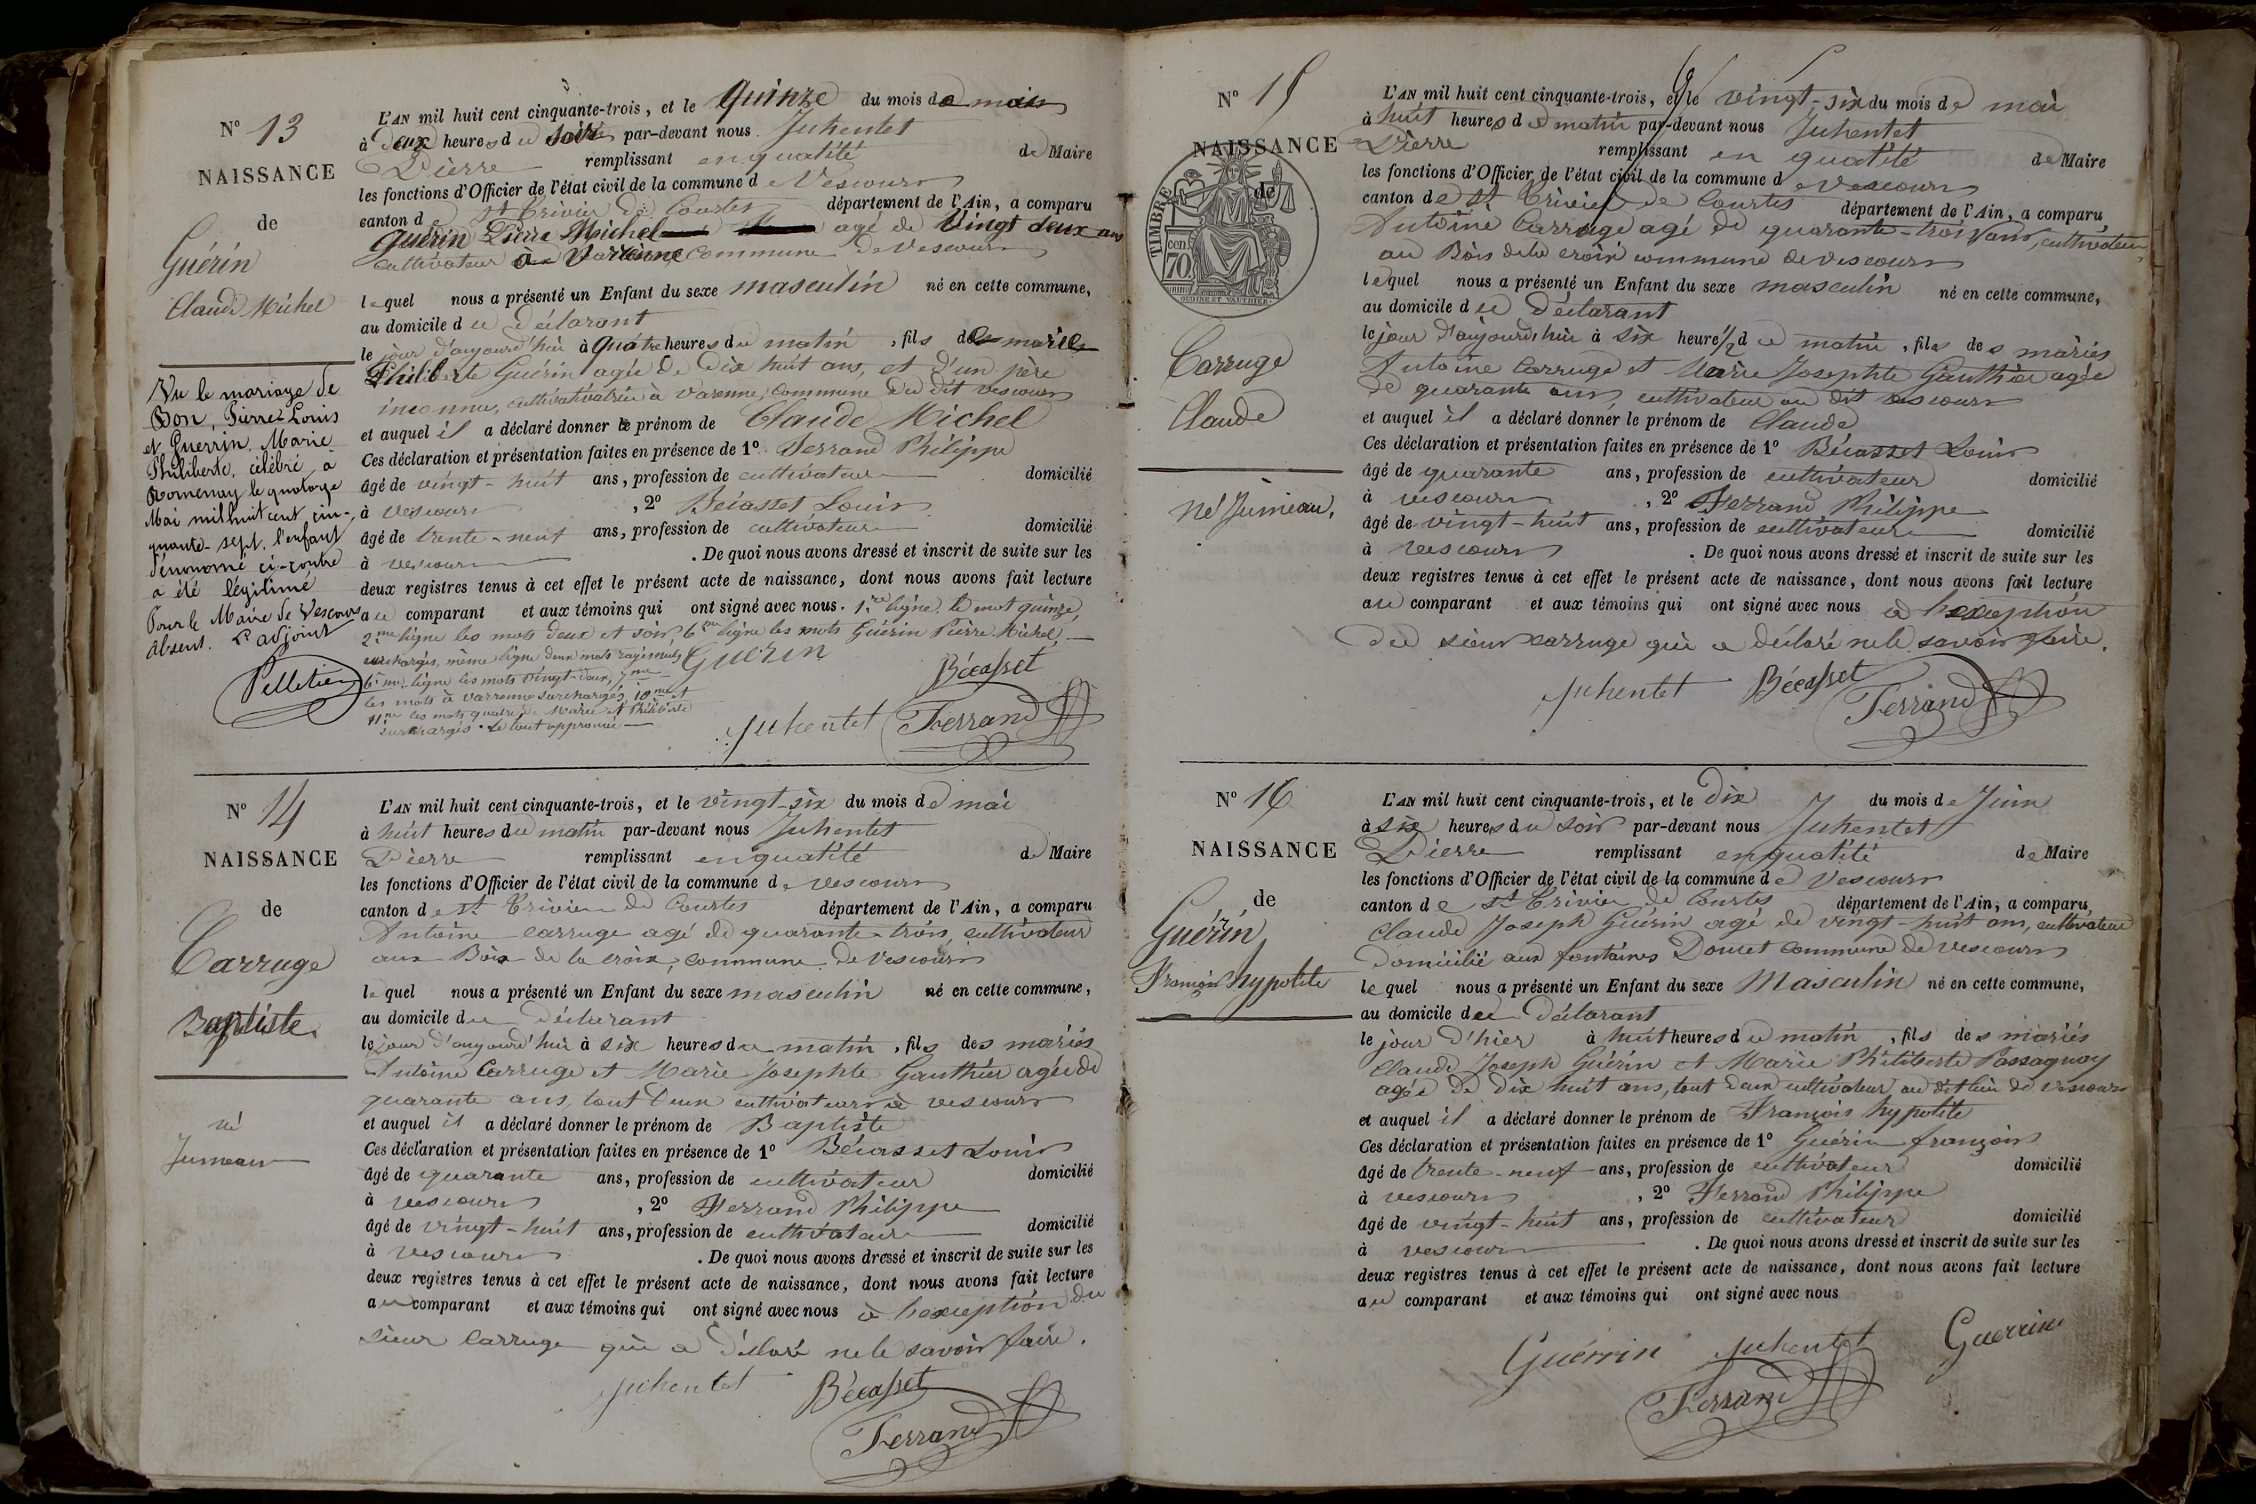 N° 13
NAISSANCE
de
Guérin
Claude Michel
Vu le mariage de
Bon, Pierre Louis
et Guerrin Marie
Philiberte, célébré à
Romenay le quatorze
Mai mil huit cent cin-
quante-sept, l'enfant
dénommé ci-contre
a été légitimé
Pour le Maire de Vescours
absent. L'adjoint
Pelletier
L'AN mil huit cent cinquante-trois, et le quinze du mois de mai
à deux heures du soir par-devant nous Juhentet
Pierre remplissant en qualité de Maire
les fonctions d'Officier de l'état civil de la commune de Vescours
canton de St Trivier de Courtes département de l'Ain, a comparu
Guérin Pierre Michel agé de vingt deux ans
cultivateur à Varenne commune de Vescours
lequel nous a présenté un Enfant du sexe masculin né en cette commune,
au domicile du déclarant
le jour d'aujourd'hui à quatre heures du matin, fils de marie
Philiberte Guérin agée de dix huit ans, et d'un père
inconnu, cultivatrice à Varenne, commune du dit vescours
et auquel il a déclaré donner le prénom de Claude Michel
Ces déclaration et présentation faites en présence de 1° Ferrand Philippe
âgé de vingt-huit ans, profession de cultivateur domicilié
à vescours, 2° Bécasset Louis
âgé de trente-neuf ans, profession de cultivateur domicilié
à vescours. De quoi nous avons dressé et inscrit de suite sur les
deux registres tenus à cet effet le présent acte de naissance, dont nous avons fait lecture
au comparant et aux témoins qui ont signé avec nous. 1re ligne le mot quinze,
2me ligne les mots deux et soir, 6me ligne les mots Guérin Pierre Michel
surchargés, même ligne deux mots rayés nuls
6me ligne les mots vingt-deux, 7me
les mots à varenne surchargés, 10me et
11me les mots quatre, de Marie et Philiberte
surchargés. Le tout approuvé
Guerin
Bécasset
Juhentet Ferrand
N° 14
NAISSANCE
de
Carruge
Baptiste
né
Jumeau
L'AN mil huit cent cinquante-trois, et le vingt-six du mois de mai
à huit heures du matin par-devant nous Juhentet
Pierre remplissant en qualité de Maire
les fonctions d'Officier de l'état civil de la commune de vescours
canton de St Trivier de Courtes département de l'Ain, a comparu
Antoine carruge agé de quarante-trois, cultivateur
aux Bois de la croix, commune de Vescours
lequel nous a présenté un Enfant du sexe masculin né en cette commune,
au domicile du déclarant
le jour d'aujourd'hui à six heures du matin, fils des mariés
Antoine Carruge et Marie Josephte Gauthier agée de
quarante ans, tout deux cultivateurs à vescours
et auquel il a déclaré donner le prénom de Baptiste
Ces déclaration et présentation faites en présence de 1° Bécasset Louis
âgé de quarante ans, profession de cultivateur domicilié
à vescours, 2° Ferrand Philippe
âgé de vingt-huit ans, profession de cultivateur domicilié
à vescours. De quoi nous avons dressé et inscrit de suite sur les
deux registres tenus à cet effet le présent acte de naissance, dont nous avons fait lecture
au comparant et aux témoins qui ont signé avec nous à l'exception du
sieur Carruge qui a déclaré ne le savoir faire.
Juhentet Bécasset
Ferrand
N° 15
NAISSANCE
de
TIMBRE
cen.
70
Carruge
Claude
né Jumeau,
L'AN mil huit cent cinquante-trois, et le vingt-six du mois de mai
à huit heures du matin par-devant nous Juhentet
Pierre remplissant en qualité de Maire
les fonctions d'Officier de l'état civil de la commune de vescours
canton de St Trivier de Courtes département de l'Ain, a comparu
Antoine Carruge agé de quarante-trois ans, cultivateur
au Bois de la croix commune de vescours
lequel nous a présenté un Enfant du sexe masculin né en cette commune,
au domicile du déclarant
le jour d'aujourd'hui à six heure 1/2 du matin, fils des mariés
Antoine Carruge et Marie Josephte Gauthier agée
de quarante ans, cultivateur au dit vescours
et auquel il a déclaré donner le prénom de Claude
Ces déclaration et présentation faites en présence de 1° Bécasset Louis
âgé de quarante ans, profession de cultivateur domicilié
à vescours, 2° Ferrand Philippe
âgé de vingt-huit ans, profession de cultivateur domicilié
à vescours. De quoi nous avons dressé et inscrit de suite sur les
deux registres tenus à cet effet le présent acte de naissance, dont nous avons fait lecture
au comparant et aux témoins qui ont signé avec nous à l'exception
du sieur carruge qui a déclaré ne le savoir faire.
Juhentet Bécasset
Ferrand
N° 16
NAISSANCE
de
Guérin
François hypolite
L'AN mil huit cent cinquante-trois, et le dix du mois de Juin
à six heures du soir par-devant nous Juhentet
Pierre remplissant en qualité de Maire
les fonctions d'Officier de l'état civil de la commune de Vescours
canton de St Trivier de Courtes département de l'Ain, a comparu
Claude Joseph Guérin agé de vingt-huit ans, cultivateur
domicilié aux fontaines Doucet commune de vescours
lequel nous a présenté un Enfant du sexe Masculin né en cette commune,
au domicile du déclarant
le jour d'hier à huit heures du matin, fils des mariés
Claude Joseph Guérin et Marie Philiberte Passaquay
agée de dix huit ans, tout deux cultivateur au dit lieu de vescours
et auquel il a déclaré donner le prénom de François hypolite
Ces déclaration et présentation faites en présence de 1° Guérin françois
âgé de trente-neuf ans, profession de cultivateur domicilié
à vescours, 2° Ferrand Philippe
âgé de vingt-huit ans, profession de cultivateur domicilié
à vescours. De quoi nous avons dressé et inscrit de suite sur les
deux registres tenus à cet effet le présent acte de naissance, dont nous avons fait lecture
au comparant et aux témoins qui ont signé avec nous
Guérrin Juhentet Guerrin
Ferrand